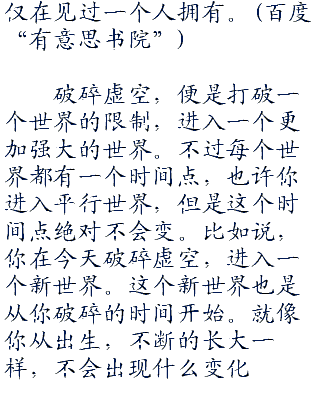 仅在见过一个人拥有。（百度
“有意思书院”）
破碎虚空，便是打破一
个世界的限制，进入一个更
加强大的世界。不过每个世
界都有一个时间点，也许你
进入平行世界，但是这个时
间点绝对不会变。比如说，
你在今天破碎虚空，进入一
个新世界。这个新世界也是
从你破碎的时间开始。就像
你从出生，不断的长大一
样，不会出现什么变化